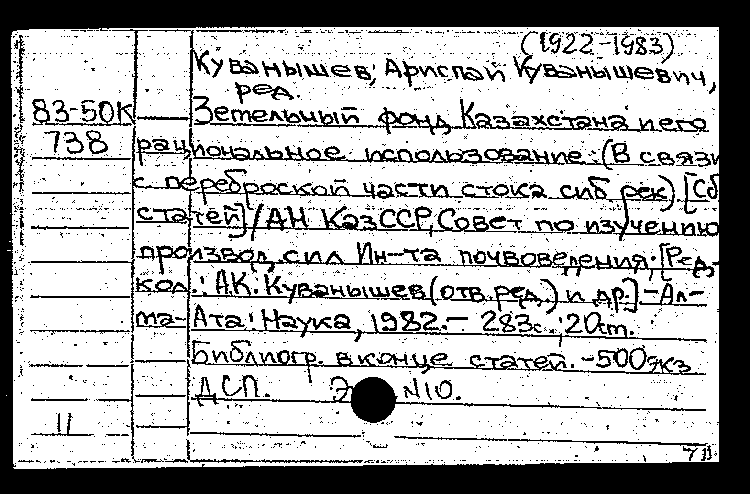 (1922-1983)
Куванышев, Ариспай Куванышевич,
ред.
83-50К Зетельный фонд Казахстана и его
738 рациональное использование: (В связи
с переброской части стока сиб рек). [Сб
статей] / АН КазССР, Совет по изучению
производ. сил Ин-та почвоведения; [Ред.-
кол.: А.К. Куванышев (отв. ред.) и др.] - Ал-
ма-Ата: Наука, 1982. - 283с.; 20см.
Библиогр. в конце статей. - 500 экз
ДСП. N10.
11
711